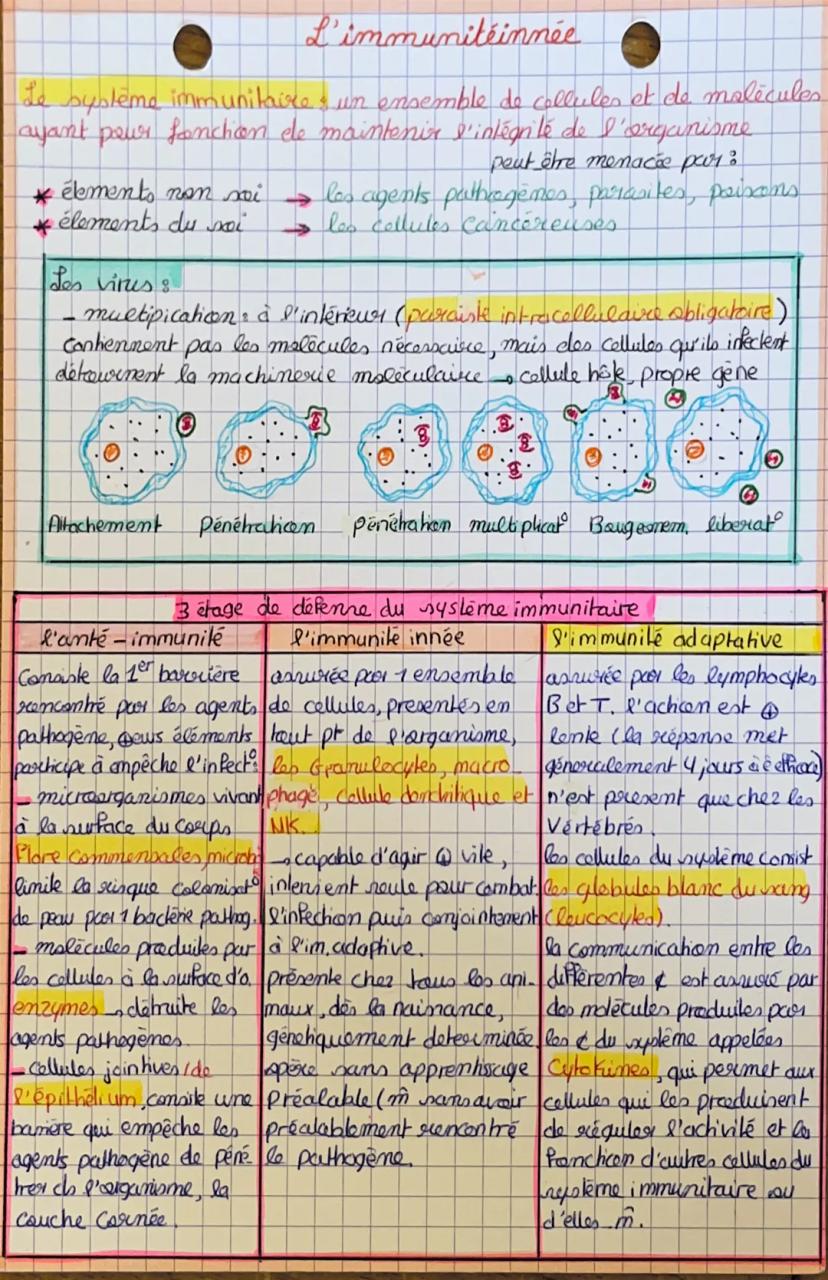 L'immunitéinnée
Le système immunitaire : un ensemble de cellules et de molécules
ayant pour fonction de maintenir l'intégrité de l'organisme
peut être menacée par :
* élements non soi → les agents pathogènes, parasites, poisons
* éléments du soi → les cellules cancéreuses
Les virus :
- multipication : à l'intérieur (paraiste intracellulaire obligatoire)
contiennent pas les molécules nécessaire, mais des cellules qu'ils infectent
détournent la machinerie moléculaire → cellule hôte, propre gène
Attachement Pénétration pénétration multiplicat° Bougeonem. liberat°
3 étage de défense du système immunitaire
l'anté-immunité
Consiste la 1er barrière
rencontré par les agents
pathogène, ⊕eurs éléments
participe à empêche l'infect°
- microorganismes vivant
à la surface du corps
Flore commensales, microbi
limite la risque colonisat°
de peau par 1 bactérie pathog.
- molécules produites par
les cellules à la surface d'o.
enzymes → détruite les
agents pathogènes.
- cellules jointives / de
l'épithélium, consite une
barrière qui empêche les
agents pathogène de péné-
trer ds l'organisme, la
couche cornée.
l'immunité innée
assurée par 1 ensemble
de cellules, presentés en
tout pt de l'organisme,
les Granulocytes, macro
phage, cellule dendritique et
NK.
→ capable d'agir ⊕ vite,
intervient seule pour combat.
l'infection puis conjointement
à l'im. adaptive.
présente chez tous les ani-
maux, dès la naissance,
génétiquement determinée
opère sans apprentissage
Préalable (m̂ sans avoir
préalablement rencontré
le pathogène.
l'immunité adaptative
assurée par les lymphocytes
B et T. l'action est ⊕
lente (la réponse met
génoralement 4 jours à ê efficace)
n'est présent que chez les
Vertébrés.
les cellules du système consist
les globules blanc du sang
(leucocytes).
la communication entre les
différentes ¢ est assuré par
des molécules produites par
les ¢ du système appelées
Cytokimes, qui permet aux
cellules qui les produisent
de réguler l'activité et la
fonction d'autres cellules du
système immunitaire ou
d'elles m̂.